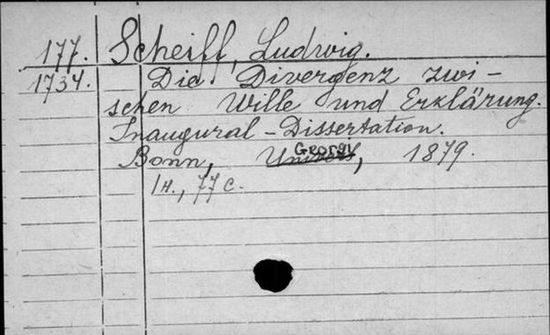 177. Scheiff, Ludwig.
1734. Die Divergenz zwi-
schen Wille und Erklärung.
Inaugural-Dissertation.
Bonn, Georgi, 1879.
1н., 77 с.